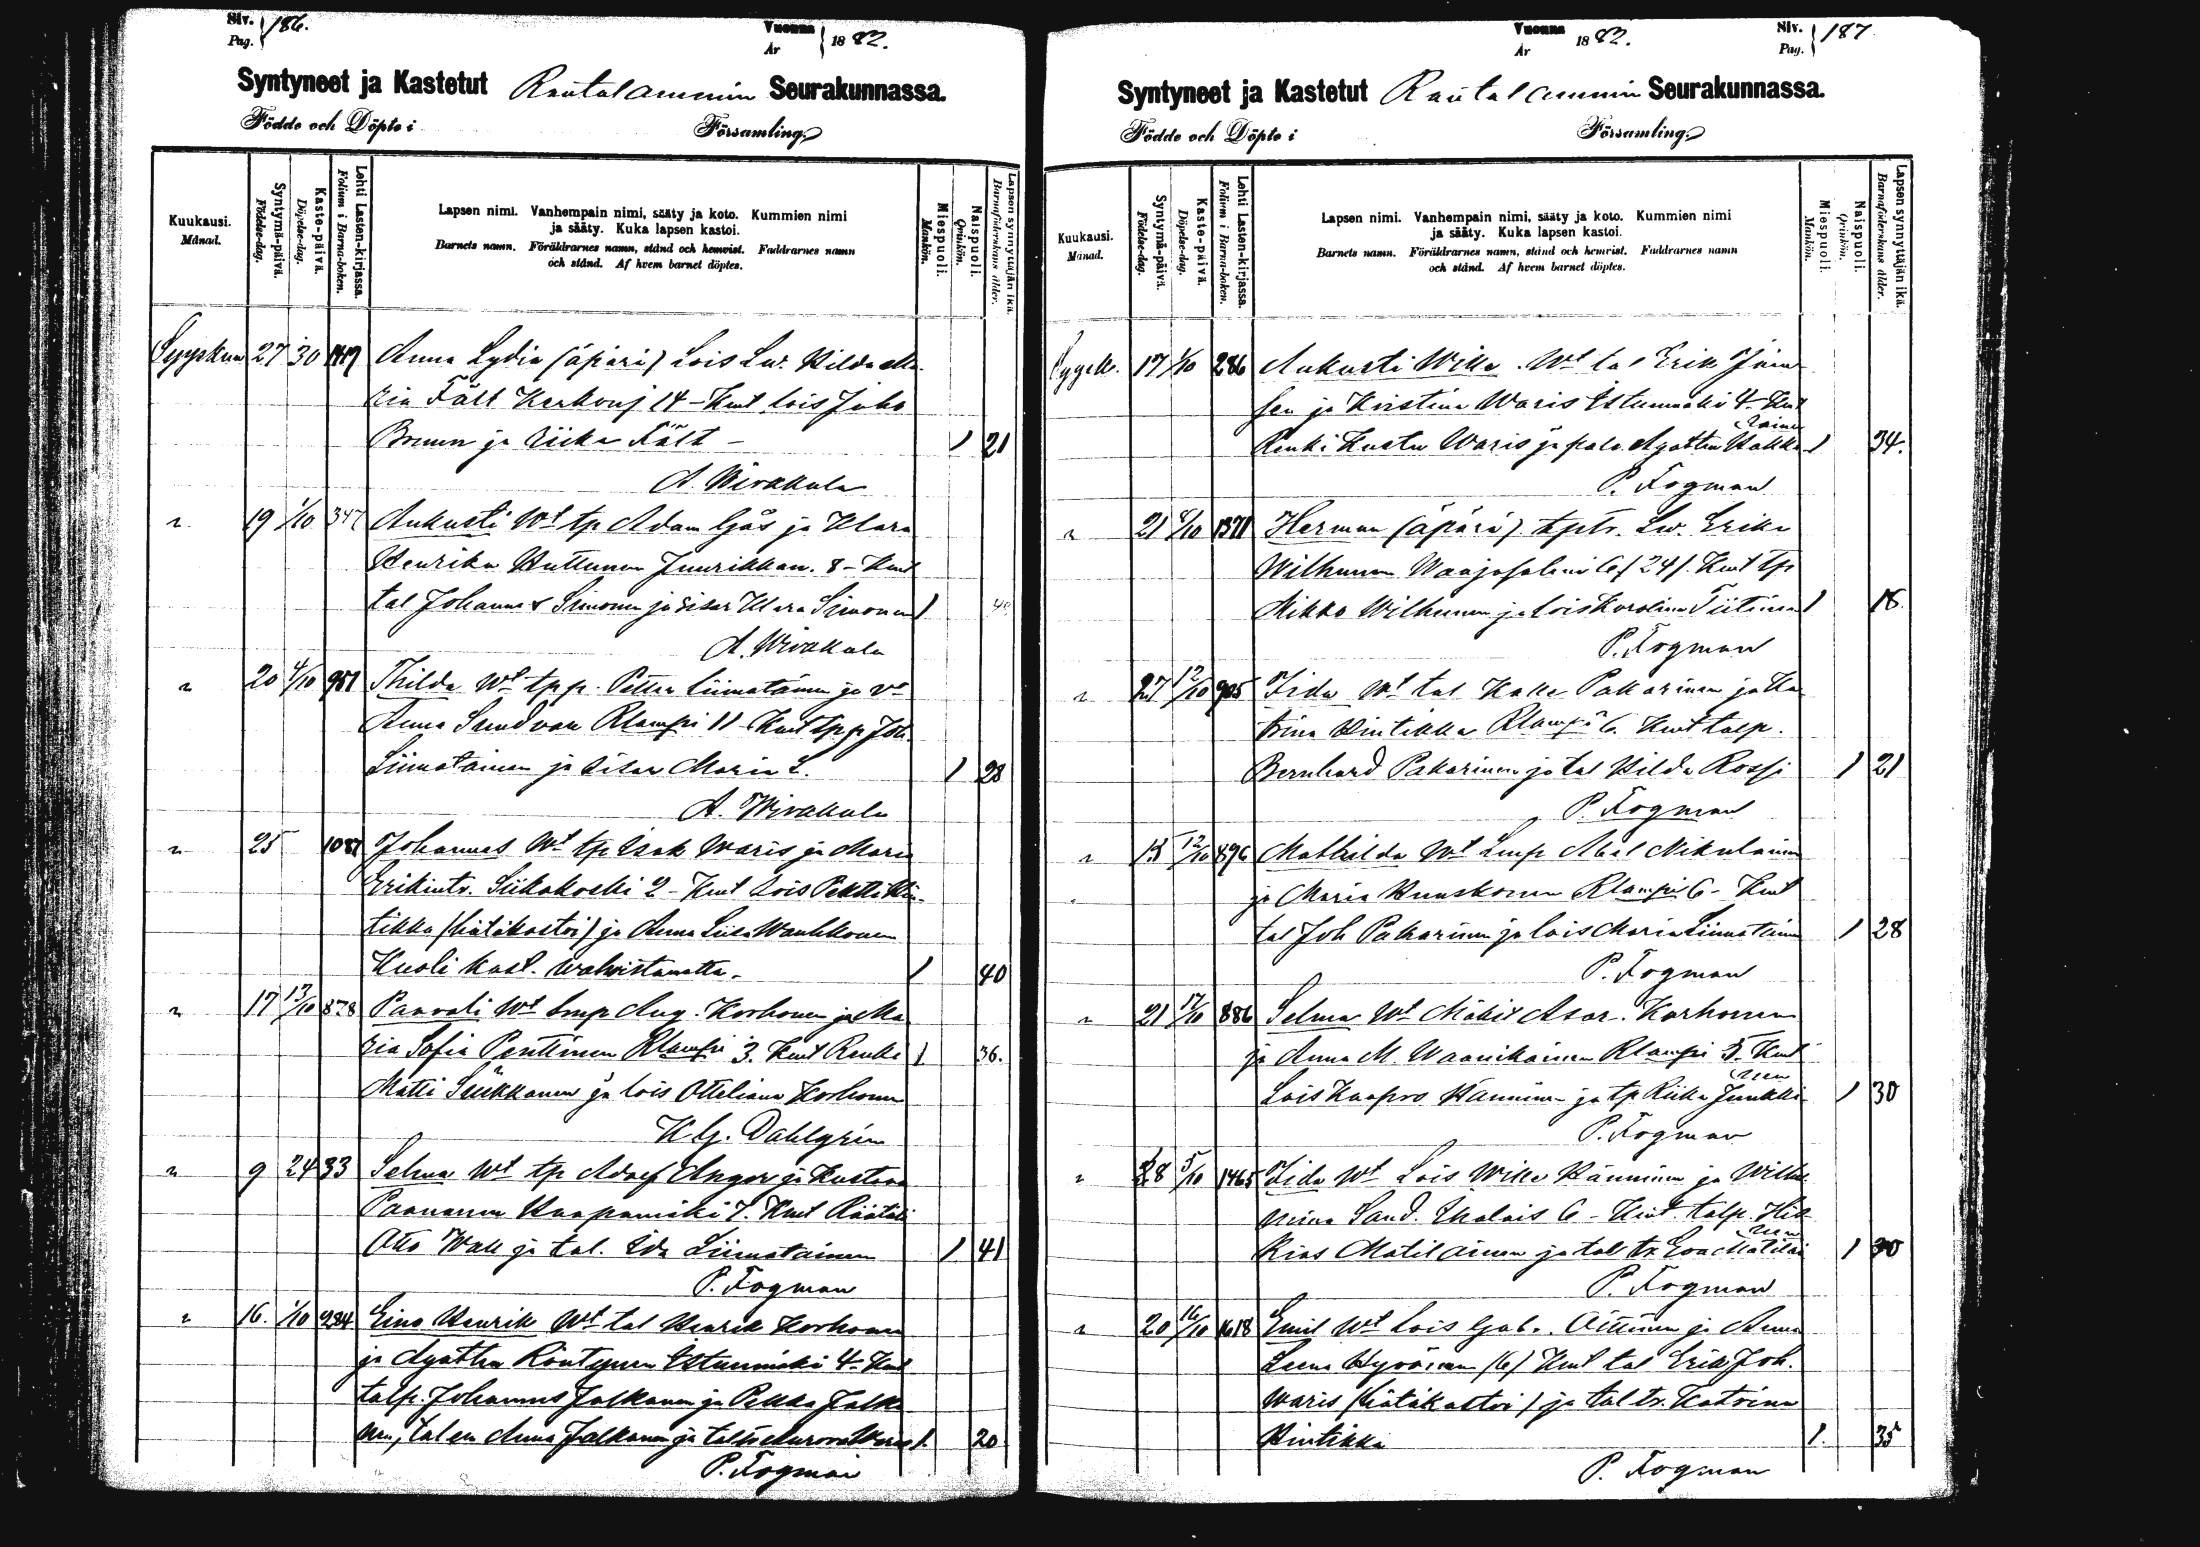 Siv. Pag. 186.
Vuonna År 1882.
Syntyneet ja Kastetut Rautalammin Seurakunnassa.
Födde och Döpte i Församling.
Kuukausi. Månad.
Syntymä-päivä. Födelse-dag.
Kaste-päivä. Döpelse-dag.
Lehti Lasten-kirjassa. Folium i Barna-boken.
Lapsen nimi. Vanhempain nimi, sääty ja koto. Kummien nimi
ja sääty. Kuka lapsen kastoi.
Barnets namn. Föräldrarnes namn, stånd och hemvist. Faddrarnes namn
och stånd. Af hvem barnet döptes.
Miespuoli. Mankön.
Naispuoli. Qvinkön.
Lapsen synnyttäjän ikä. Barnaföderskans ålder.
Syyskuu 27 30 Anna Lydia (äpärä) Lois Lw. Hilda Ma-
ria Fält Kerkonj 14 - Kmt lois Juho
Brunn ja Fält - 1 21
A. Wirakkala
19 1/10 347 Aukusti Wt tp Adam Gås ja Klara
Henrika Huttunen Juurikkan. 8 - Kmt
tal Johannes Simonen ja sisar Klara Simonen 1
A. Wirakkala
20 4/10 951 Thilda Wt tpp. Petter Liimatainen ja v
Anna Sundvan Rlampi 11 Kmt tpp Joh.
Liimatainen ja sisar Maria L. 1 28
A. Wirakkala
25 1087 Johannes Wt tp Isak Waris ja Maria
Erikintr. Siikakoski 2 - Kmt lois Pekka Hin-
tikka (hätäkastoi) ja Anna Liisa Wauhkonen
Kuoli kast. wahwistamatta. 1 40
17 13/10 828 Paavali Wt Lmp Aug. Korhonen ja Ma-
ria Sofia Penttinen Rlampi 3. Kmt Renki 1 36.
Matti Siikkanen ja lois Otteliana Korhonen
K. G. Dahlgrén
9 24 33 Selma Wt tp Adolf Anger ja Kustava
Paananen Haapamäki 7. Kmt Räätäli
Otto Wall ja tal. Ida Liimatainen 1 41
P. Fogman
16. 1/10 284 Eino Henrik Wt tal Henrik Korhonen
ja Agatha Röntynen Istunmäki 4. Kmt
talp. Johannes Jalkanen ja Pekka Jalka-
nen, tal en Anna Jalkanen ja 1. 20
P. Fogman
Vuonna År 1882.
Siv. Pag. 187
Syntyneet ja Kastetut Rautalammin Seurakunnassa.
Födde och Döpte i Församling.
Kuukausi. Månad.
Syntymä-päivä. Födelse-dag.
Kaste-päivä. Döpelse-dag.
Lehti Lasten-kirjassa. Folium i Barna-boken.
Lapsen nimi. Vanhempain nimi, sääty ja koto. Kummien nimi
ja sääty. Kuka lapsen kastoi.
Barnets namn. Föräldrarnes namn, stånd och hemvist. Faddrarnes namn
och stånd. Af hvem barnet döptes.
Miespuoli. Mankön.
Naispuoli. Qvinkön.
Lapsen synnyttäjän ikä. Barnaföderskans ålder.
Syysk. 17 1/10 286 Aukusti Wille. Wt tal Erik
ja Kristina Waris Istunmäki 4. Kmt
Renki Kustu Waris ja palv. Agatha Hakka- 1 34.
rainen
P. Fogman
21 1371 Herman (äpärä) tptr. Lw. Erika
Wilhunen Waajasalmi 6 /24/. Kmt tp
Mikko Wilhunen ja lois Karolina Tiitinen 1 18
P. Fogman
27 12/10 905 Iida Wt tal Kalle Pakarinen ja Ka-
trina Hintikka Rlampi 6. Kmt talp.
Bernhard Pakarinen ja tal Hilda Rossi 1 21
P. Fogman
15 12/10 896 Mathilda Wt Lmp Abel Nikulainen
ja Maria Huuskonen Rlampi 6 - Kmt
tal Joh Pakarinen ja lois Maria Liimatainen 1 28
P. Fogman
21 12/10 886 Selma Wt Mäkit Asar. Korhonen
ja Anna M. Waanikainen Rlampi 5. Kmt
Lois Kaapro Hänninen ja tp Riika Junkki- 1 30
nen
P. Fogman
28 5/10 1465 Iida Wt Lois Wille Hänninen ja Wilhel-
mina Sand. 6 - Kmt. talp. Hik-
kias Matilainen ja tal tr. Eva Matilai- 1 30
nen
P. Fogman
20 16/10 1618 Emil Wt Lois Gab. Oittinen ja Anna
Leena Hyvönen /6/ Kmt tal Erik Joh.
Waris (hätäkastoi) ja tal tr. Katrina
Hintikka 1. 35
P. Fogman